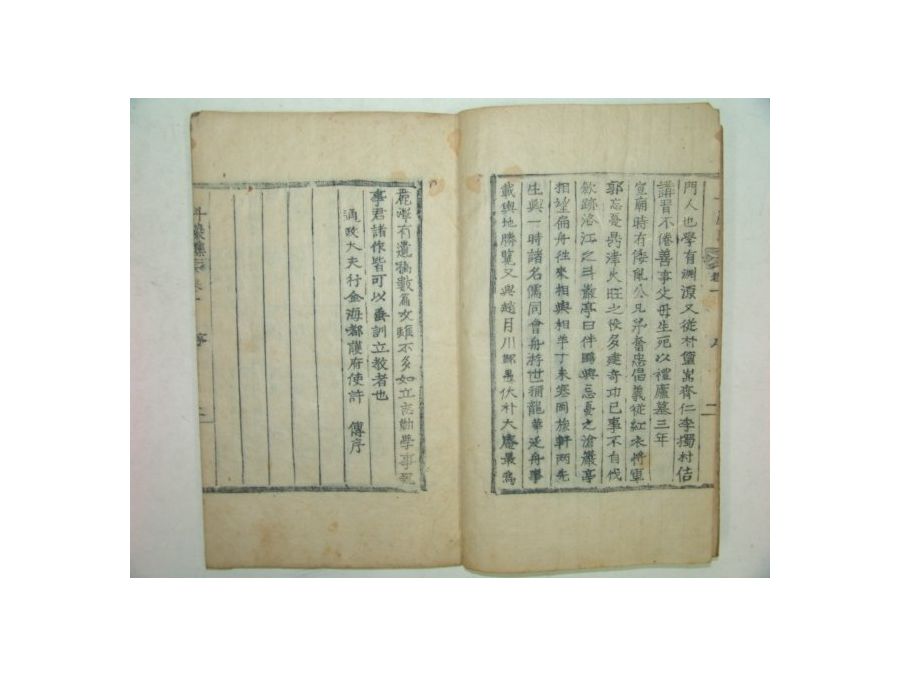 門人也學有淵源又從朴篁嵒齊仁李獨村佶
講習不倦善事父母生死以禮廬墓三年
宣廟時有倭亂公兄弟奮忠倡義從紅衣將軍
郭忘憂鼎津火旺之役多建奇功已事不自伐
斂跡洛江之斗巖亭曰伴鷗與忘憂之滄巖亭
相望扁舟往來相與相羊丁未寒岡旅軒兩先
生與一時諸名儒同會舟游世稱龍華泛舟事
載輿地勝覽又與趙月川 伏朴大庵最爲
有遺稿數篇文雖不多如立志勸學事親
事君諸作皆可以垂訓立教者也
通政大夫行金海都護府使許 傳序